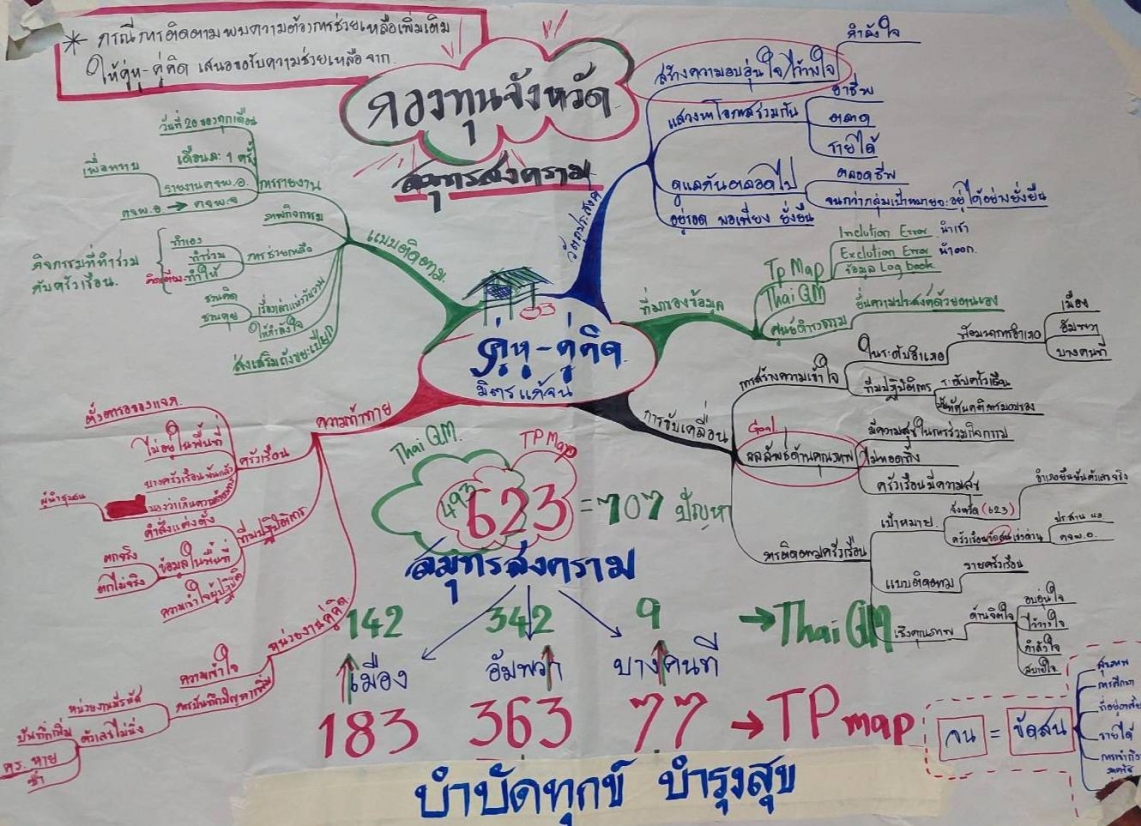 * กรณีการติดตามพบความต้องการช่วยเหลือเพิ่มเติม
ให้คู่หู-คู่คิด เสนอขอรับความช่วยเหลือ จาก
กองทุนจังหวัด
สมุทรสงคราม
คู่หู-คู่คิด
มิตรแก้จน
วัตถุประสงค์
สร้างความอบอุ่นใจ/ไว้วางใจ
กำลังใจ
แสวงหาโอกาสร่วมกัน
อาชีพ
ตลาด
รายได้
ดูแลกันตลอดไป
ตลอดชีพ
จนกว่ากลุ่มเป้าหมายจะอยู่ได้อย่างยั่งยืน
อยู่รอด พอเพียง ยั่งยืน
ที่มาของข้อมูล
Tp Map
Inclution Error นำเข้า
Exclution Error นำออก
ข้อมูล Log book
Thai QM
ศูนย์ดำรงธรรม
ยื่นความประสงค์ด้วยตนเอง
การขับเคลื่อน
การสร้างความเข้าใจ
ในระดับอำเภอ
พัฒนาการอำเภอ
เมือง
อัมพวา
บางคนที
ทีมปฏิบัติการ
ระดับครัวเรือน
Goal
ผลลัพธ์ด้านคุณภาพ
มีความสุขในการร่วมกิจกรรม
ไม่ทอดทิ้ง
ครัวเรือนมีความสุข
การติดตามครัวเรือน
เป้าหมาย
จังหวัด (623)
อำเภอยืนยันตัวเลขจริง
ประสาน
ศจพ.อ.
แบบติดตาม
รายครัวเรือน
เชิงคุณภาพ
ด้านจิตใจ
อบอุ่นใจ
ไว้วางใจ
กำลังใจ
สบายใจ
แบบติดตาม
การรายงาน
วันที่ 20 ของทุกเดือน
เดือนละ 1 ครั้ง
รายงาน ศจพ.อ.
เพื่อทราบ
ศจพ.อ → ศจพ.จ
ภาพกิจกรรม
การช่วยเหลือ
ทำเอง
ทำร่วม
ทำให้
กิจกรรมที่ทำร่วม
กับครัวเรือน.
ชวนคิด
ชวนคุย
ให้กำลังใจ
ส่งเสริมถังขยะเปียก
ความท้าทาย
ครัวเรือน
ไม่อยู่ในพื้นที่
ผู้นำชุมชน
ทีมปฏิบัติการ
คำสั่งแต่งตั้ง
ข้อมูลในพื้นที่
ตกจริง
ตกไม่จริง
ความเข้าใจผู้ปฏิบัติ
หน่วยงานคู่คิด
ความเข้าใจ
ตัวเลขไม่นิ่ง
บันทึกเพิ่ม
คร. หาย
ซ้ำ
Thai QM.
TP Map
493
623 = 707 ปัญหา
สมุทรสงคราม
142 342 9 → Thai QM
เมือง อัมพวา บางคนที
183 363 77 → TP map
จน = ขัดสน
สุขภาพ
การศึกษา
รายได้
บำบัดทุกข์ บำรุงสุข